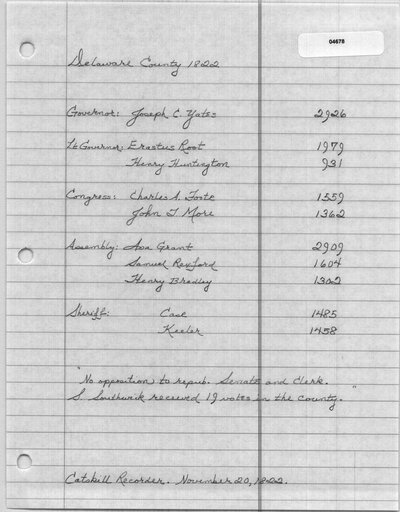 04678
Delaware County 1822
Governor: Joseph C. Yates 2926
Lt Governor: Erastus Root 1979
Henry Huntington 931
Congress: Charles A. Foote 1559
John T More 1362
Assembly: Asa Grant 2909
Samuel Rexford 1604
Henry Bradley 1302
Sheriff: Case 1485
Keeler 1458
"No opposition to repub. Senate and Clerk.
S. Southwick received 19 votes in the county."
Catskill Recorder. November 20, 1822.